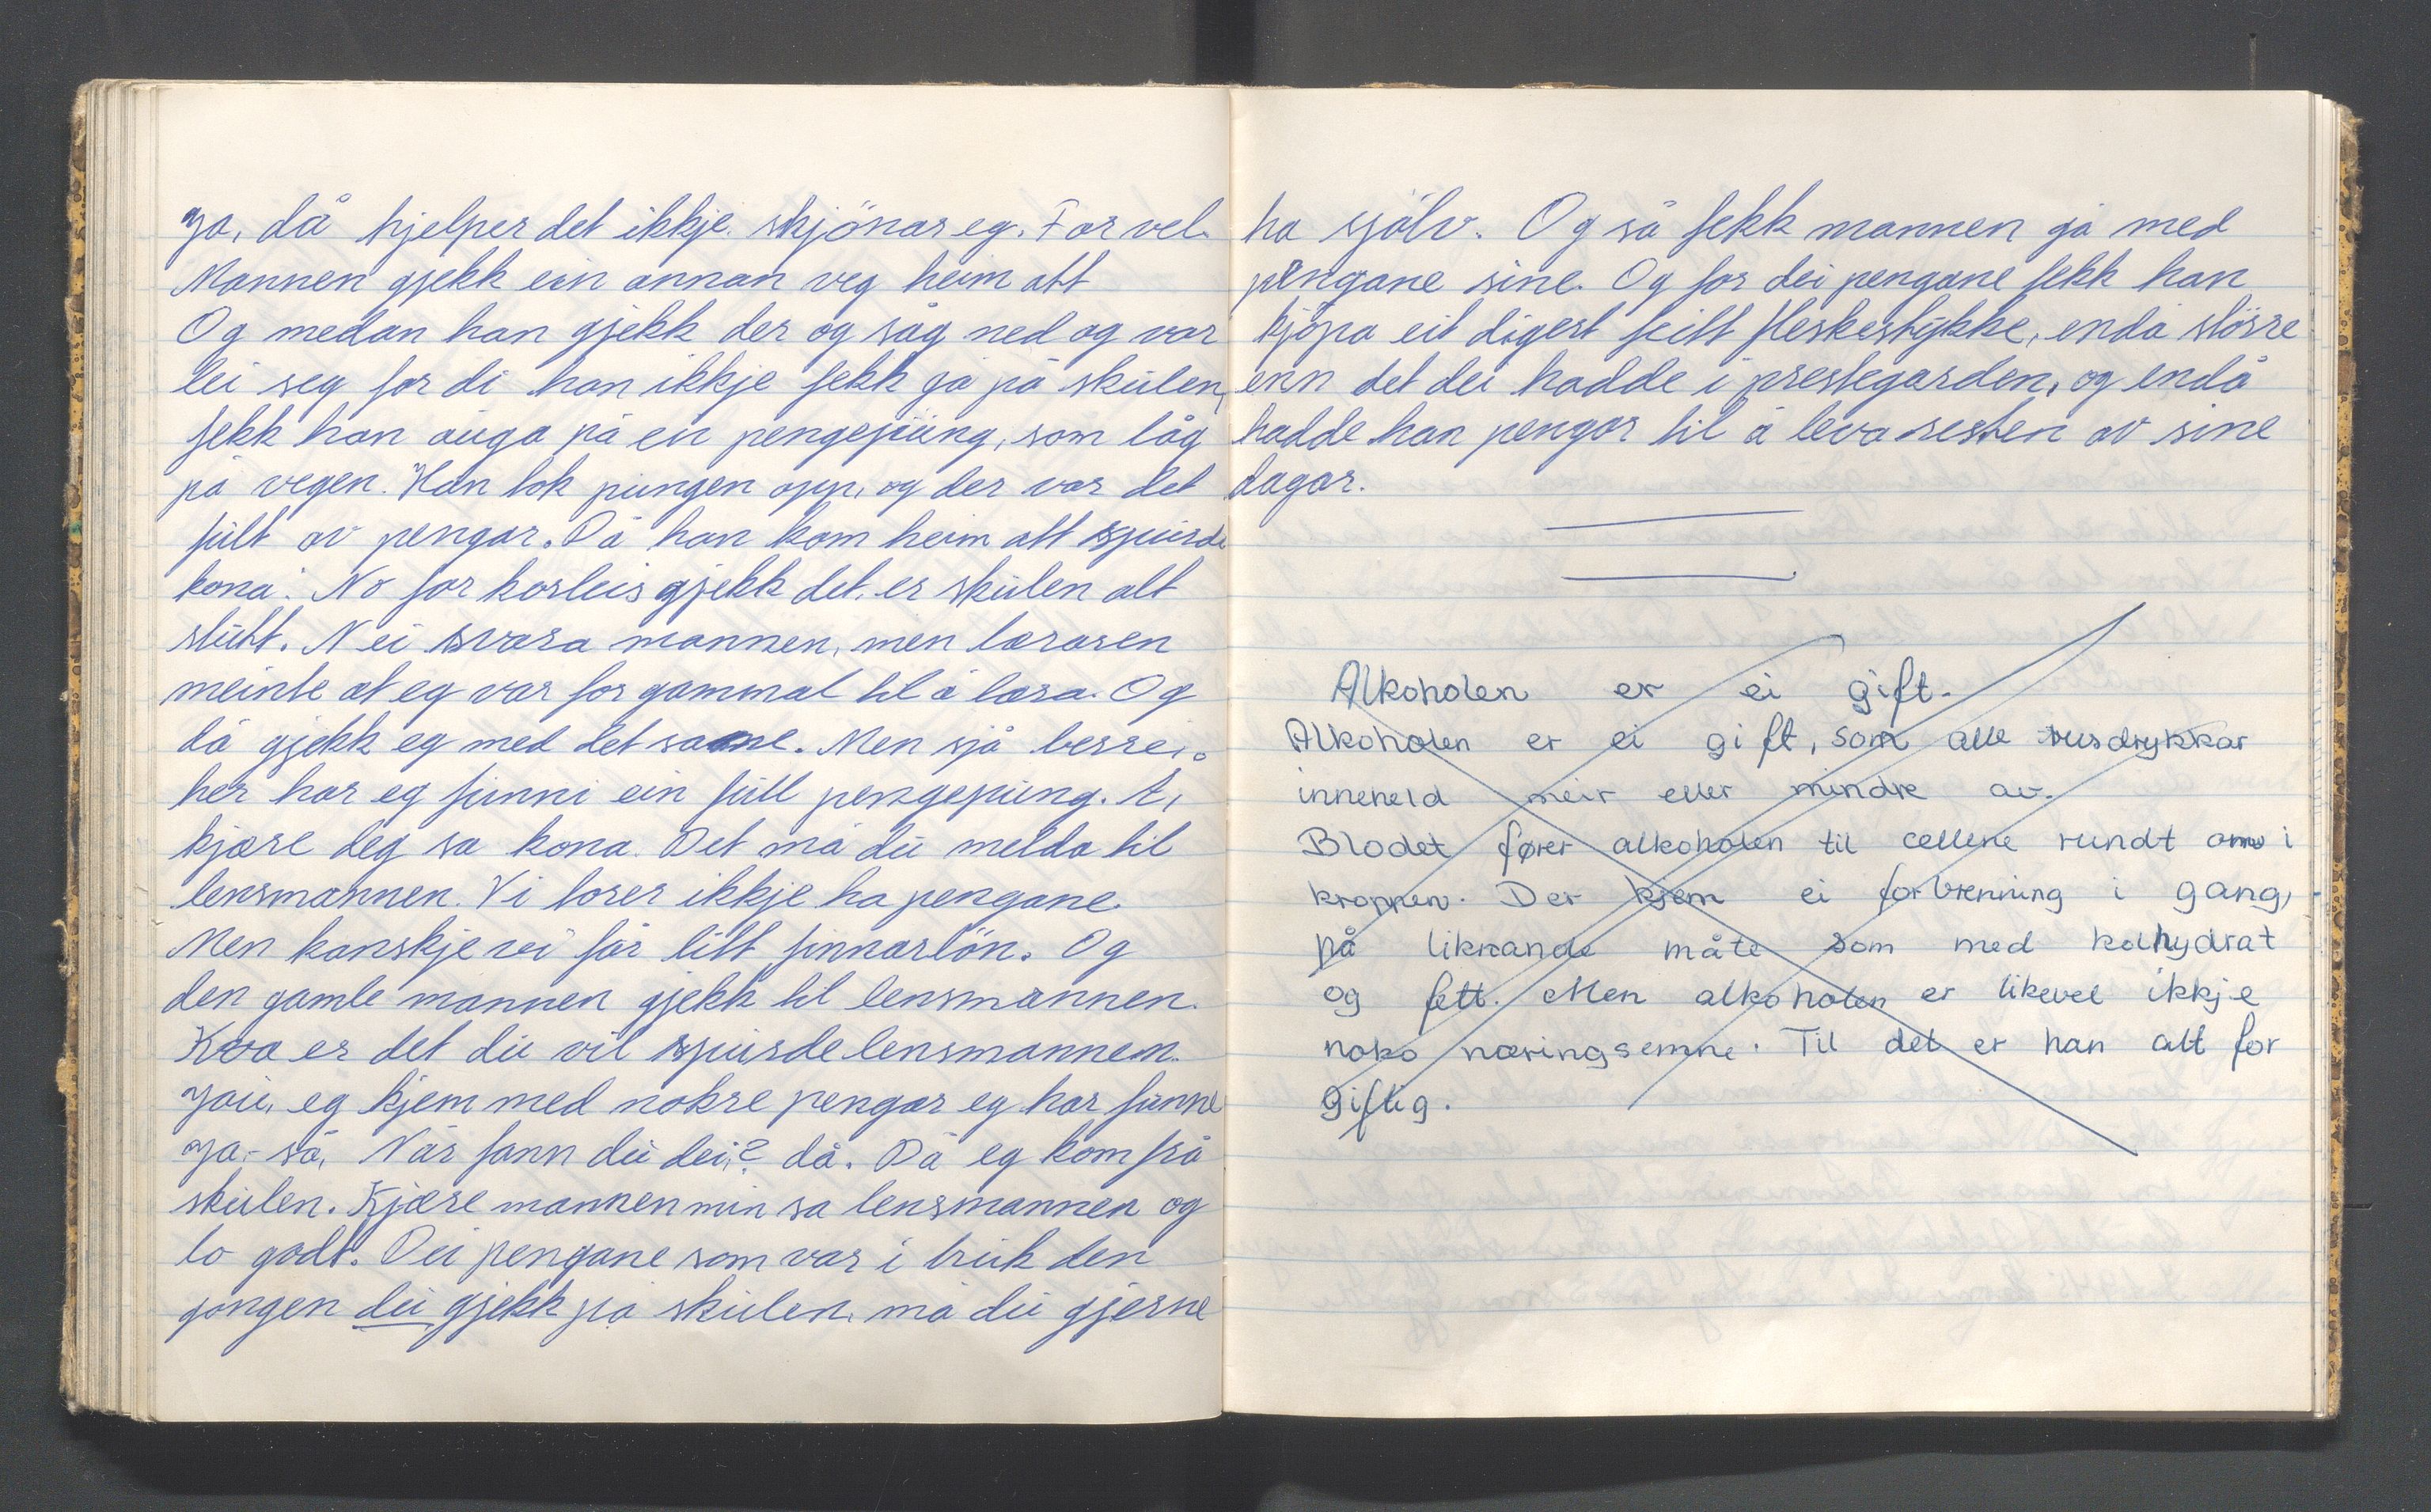 Ja, då hjelper det ikkje. skjönar eg. Far vel.
Mannen gjekk ein annan veg heim att
Og medan han gjekk der og såg ned og var
lei seg for di han ikkje fekk gå på skulen,
fekk han auga på ein pengepung, som låg
på vegen. Han tok pungen opp, og der var det
fullt av pengar. Då han kom heim att spurde
kona: No for korleis gjekk det, er skulen alt
slutt. Nei svara mannen, men læraren
meinte at eg var for gammal til å læra. Og
då gjekk eg med det same. Men sjå berre,
her har eg funni ein full pengepung. Å,
kjære deg sa kona. Det må du melda til
lensmannen. Vi torer ikkje ha pengane.
Men kanskje vi får litt finnarlön. Og
den gamle mannen gjekk til lensmannen.
Kva er det du vil spurde lensmannen.
Jau, eg kjem med nokre pengar eg har funne
Ja-så, Når fann du dei,? då. Då eg kom frå
skulen. Kjære mannen min sa lensmannen og
lo godt. Dei pengane som var i bruk den
gongen du gjekk på skulen, må du gjerne
ha sjölv. Og så fekk mannen gå med
pengane sine. Og for dei pengane fekk han
kjöpa eit digert feitt fleskestykke, endå större
enn det dei hadde i prestegarden, og endå
hadde han pengar til å leva resten av sine
dagar.
Alkoholen er ei gift.
Alkoholen er ei gift, som alle rusdrykkar
inneheld meir eller mindre av.
Blodet fører alkoholen til cellene rundt om i
kroppen. Der kjem ei forbrenning i gang,
på liknande måte som med kolhydrat
og fett. Men alkoholen er likevel ikkje
noko næringsemne. Til det er han alt for
giftig.